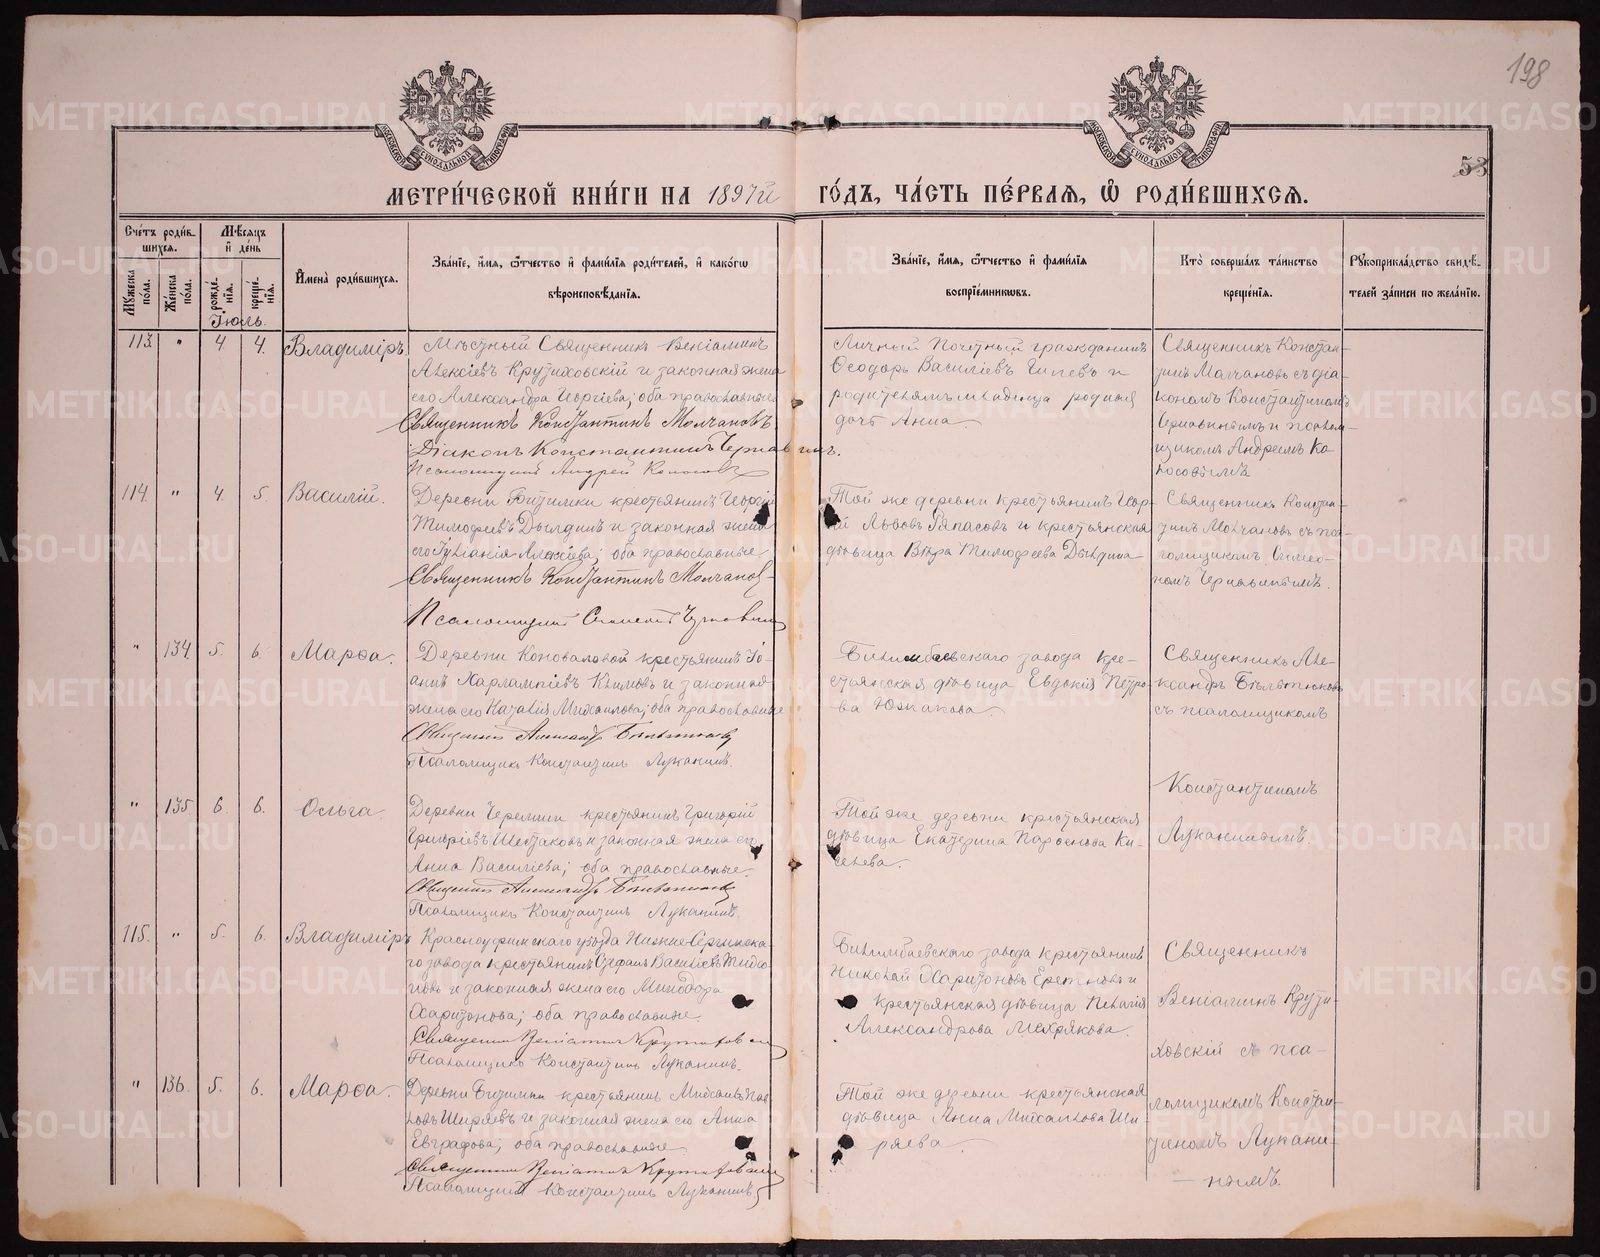 198
53
МЕТРИ́ЧЕСКОЙ КНИ́ГИ НА 1897й ГО́ДЪ, ЧА́СТЬ ПЕ́РВАЯ, Ѡ РОДИ́ВШИХСЯ.
Сче́тъ роди́в-
шихся.
Му́жеска по́ла.
Же́нска по́ла.
Мѣ́сяцъ
и де́нь
рожде́-
нїя.
креще́-
нїя.
Іюль.
И҆мена̀ роди́вшихся.
Зва́нїе, и҆́мя, ѻ҆́тчество и҆ фами́лїя роди́телей, и҆ како́гѡ
вѣроисповѣ́данїя.
Зва́нїе, и҆́мя, ѻ҆́тчество и҆ фами́лїя
воспрїе́мниковъ.
Кто̀ соверша́лъ та́инство
креще́нїя.
Рꙋкоприкла́дство свидѣ́-
телей за́писи по жела́нїю.
113. " 4 4. Владиміръ.
Мѣстный Священникъ Веніаминъ
Алексіевъ Крутиховскій и законная жена
его Александра Георгіева; оба православные
Священникъ Константинъ Молчановъ.
Діаконъ Константинъ Чернавинъ.
Псаломщикъ Андрей Колосовъ
Личный Почетный гражданинъ
Ѳеодоръ Василіевъ
родителямъ младенца родная
дочь Анна
Священникъ Констан-
тинъ Молчановъ съ діа-
кономъ Константиномъ
Чернавинымъ и псалом-
щикомъ Андреемъ Ко-
лосовымъ
114. " 4. 5. Василій.
Деревни Битимки крестьянинъ Георгій
Тимофеевъ Дылдинъ и законная жена
его Іуліанія Алексіева; оба православные
Священникъ Константинъ Молчановъ
Псаломщикъ Симеонъ Чернавинъ
Той же деревни крестьянинъ Геор-
гій Львовъ Ряпасовъ и крестьянская
дѣвица Вѣра Тимофеева Дылдина
Священникъ Констан-
тинъ Молчановъ съ пса-
ломщикомъ Симео-
номъ Чернавинымъ.
" 134. 5. 6. Марѳа.
Деревни Коноваловой крестьянинъ Іо-
аннъ Харлампіевъ Климовъ и законная
жена его Наталія Михаилова; оба православные
Священникъ Александръ
Псаломщикъ Константинъ Луканинъ.
Билимбаевскаго завода кре-
стьянская дѣвица Евдокія Петро-
ва Южакова.
Священникъ Але-
ксандръ
съ псаломщикомъ
Константиномъ
Луканинымъ.
" 135 6. 6. Ольга.
Деревни Черемши крестьянинъ Григорій
Григоріевъ Шестаковъ и законная жена его
Анна Василіева; оба православные.
Священникъ Александръ
Псаломщикъ Константинъ Луканинъ.
Той же деревни крестьянская
дѣвица Екатерина Парѳенова Ки-
селева.
115. " 5. 6. Владиміръ
Красноуфимскаго уѣзда Нижне-Сергинска-
го завода крестьянинъ Стефанъ Василіевъ
и законная жена его Минодора
Харитонова; оба православные.
Священникъ Веніаминъ Крутиховскій
Псаломщикъ Константинъ Луканинъ.
Билимбаевскаго завода крестьянинъ
Николай Харитоновъ и
крестьянская дѣвица Пелагія
Александрова Мехрякова.
Священникъ
Веніаминъ Крути-
ховскій съ пса-
ломщикомъ Констан-
тиномъ Лукани-
нымъ.
" 136. 5. 6. Марѳа.
Деревни Битимки крестьянинъ Михаилъ Пав-
ловъ Ширяевъ и законная жена его Анна
Евграфова; оба православные
Священникъ Веніаминъ Крутиховскій
Псаломщикъ Константинъ Луканинъ
Той же деревни крестьянская
дѣвица Анна Михаилова Ши-
ряева
METRIKI.GASO-URAL.RU